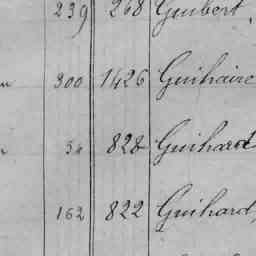 239 268 Guibert,
300 1426 Guihaire
54 828 Guihard
162 822 Guihard,